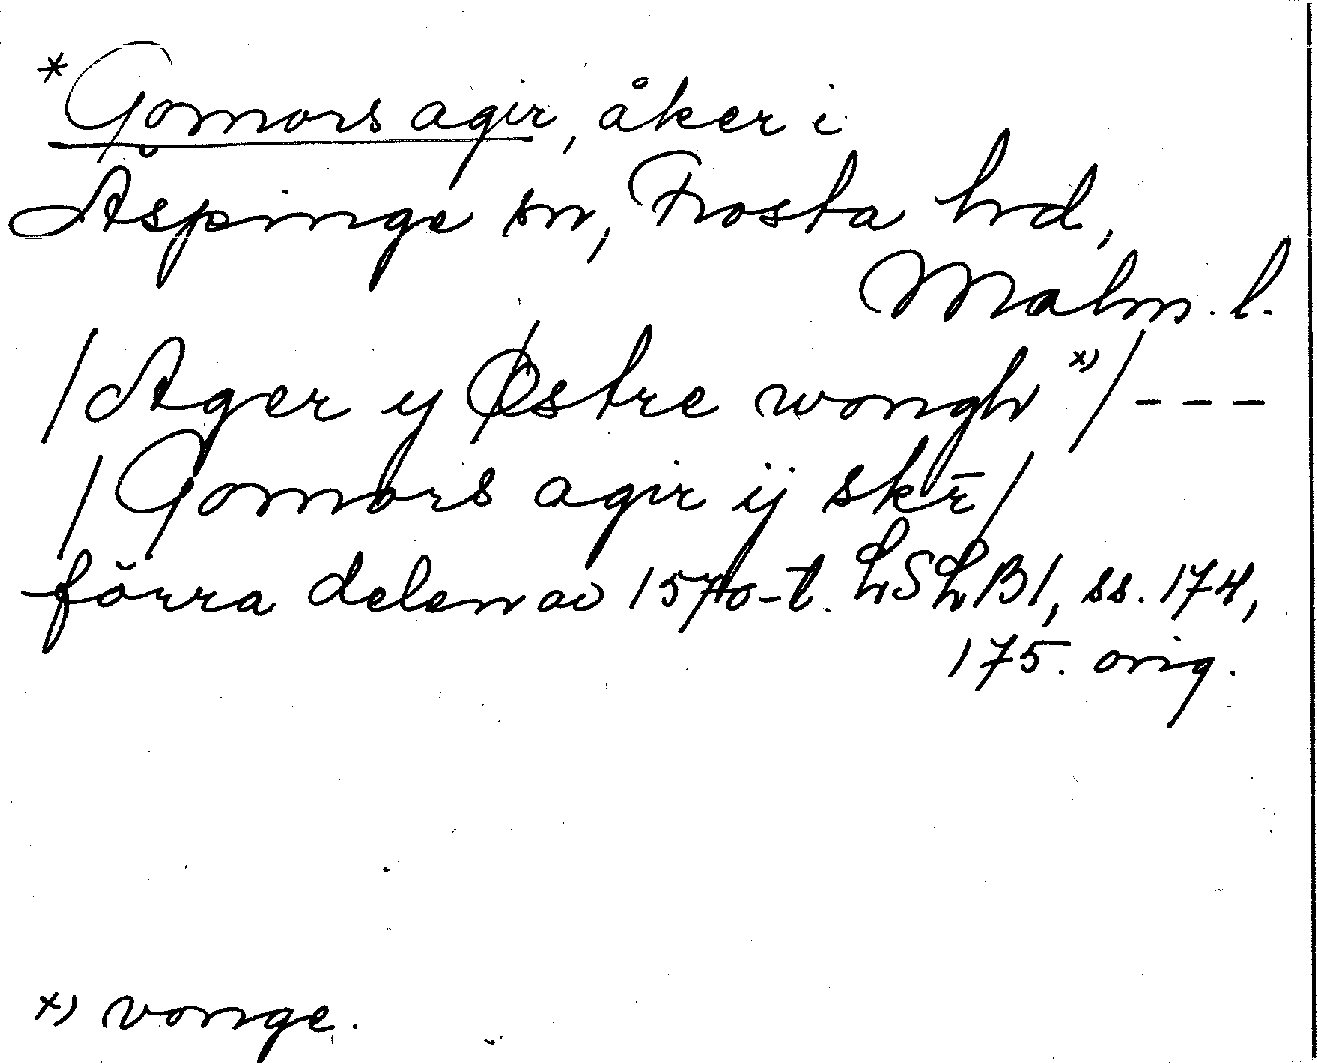 *Gomors agir, åker i
Äspinge sn, Frosta hrd,
Malm. l.
/Ager y Østre wongh *)/---
/Gomors agir ij skē/
förra delen av 1570-t. LSLB1, ss. 174,
175. orig.
*) vonge.